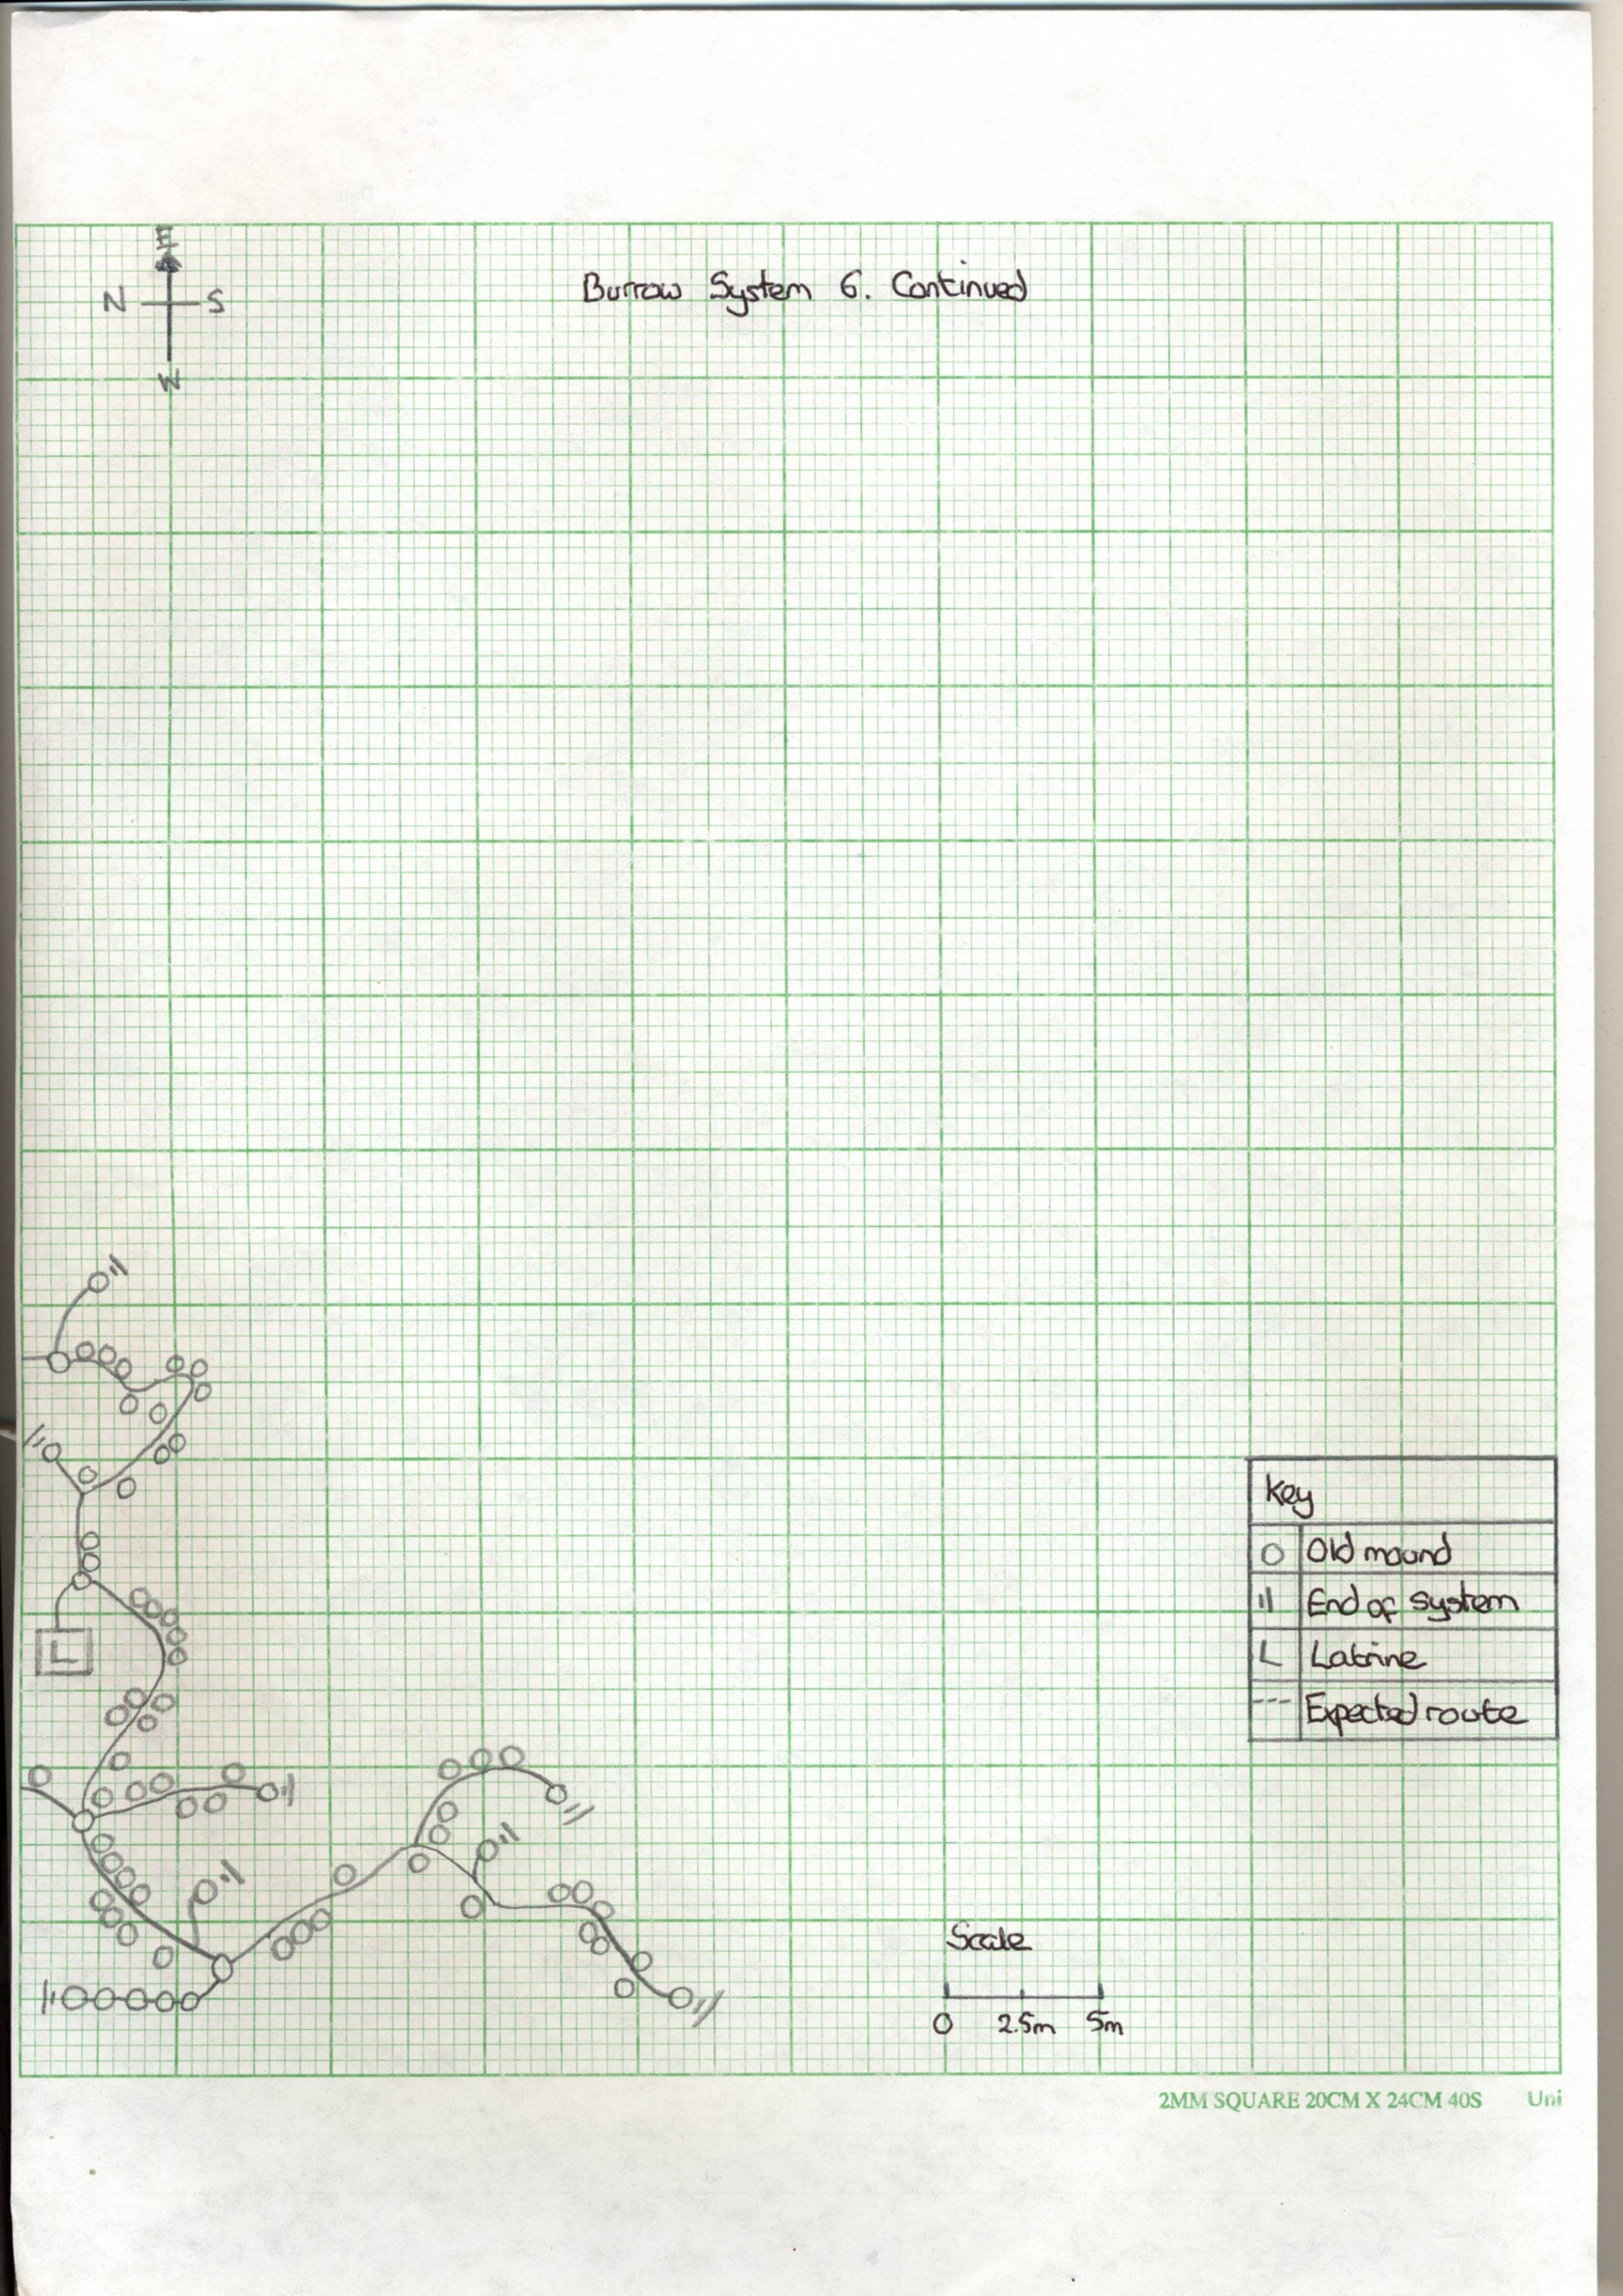 E
N S
W
Burrow System 6. Continued
L
Key
O Old mound
11 End of system
L Latrine
--- Expected route
Scale
0 2.5m 5m
2MM SQUARE 20CM X 24CM 40S Uni